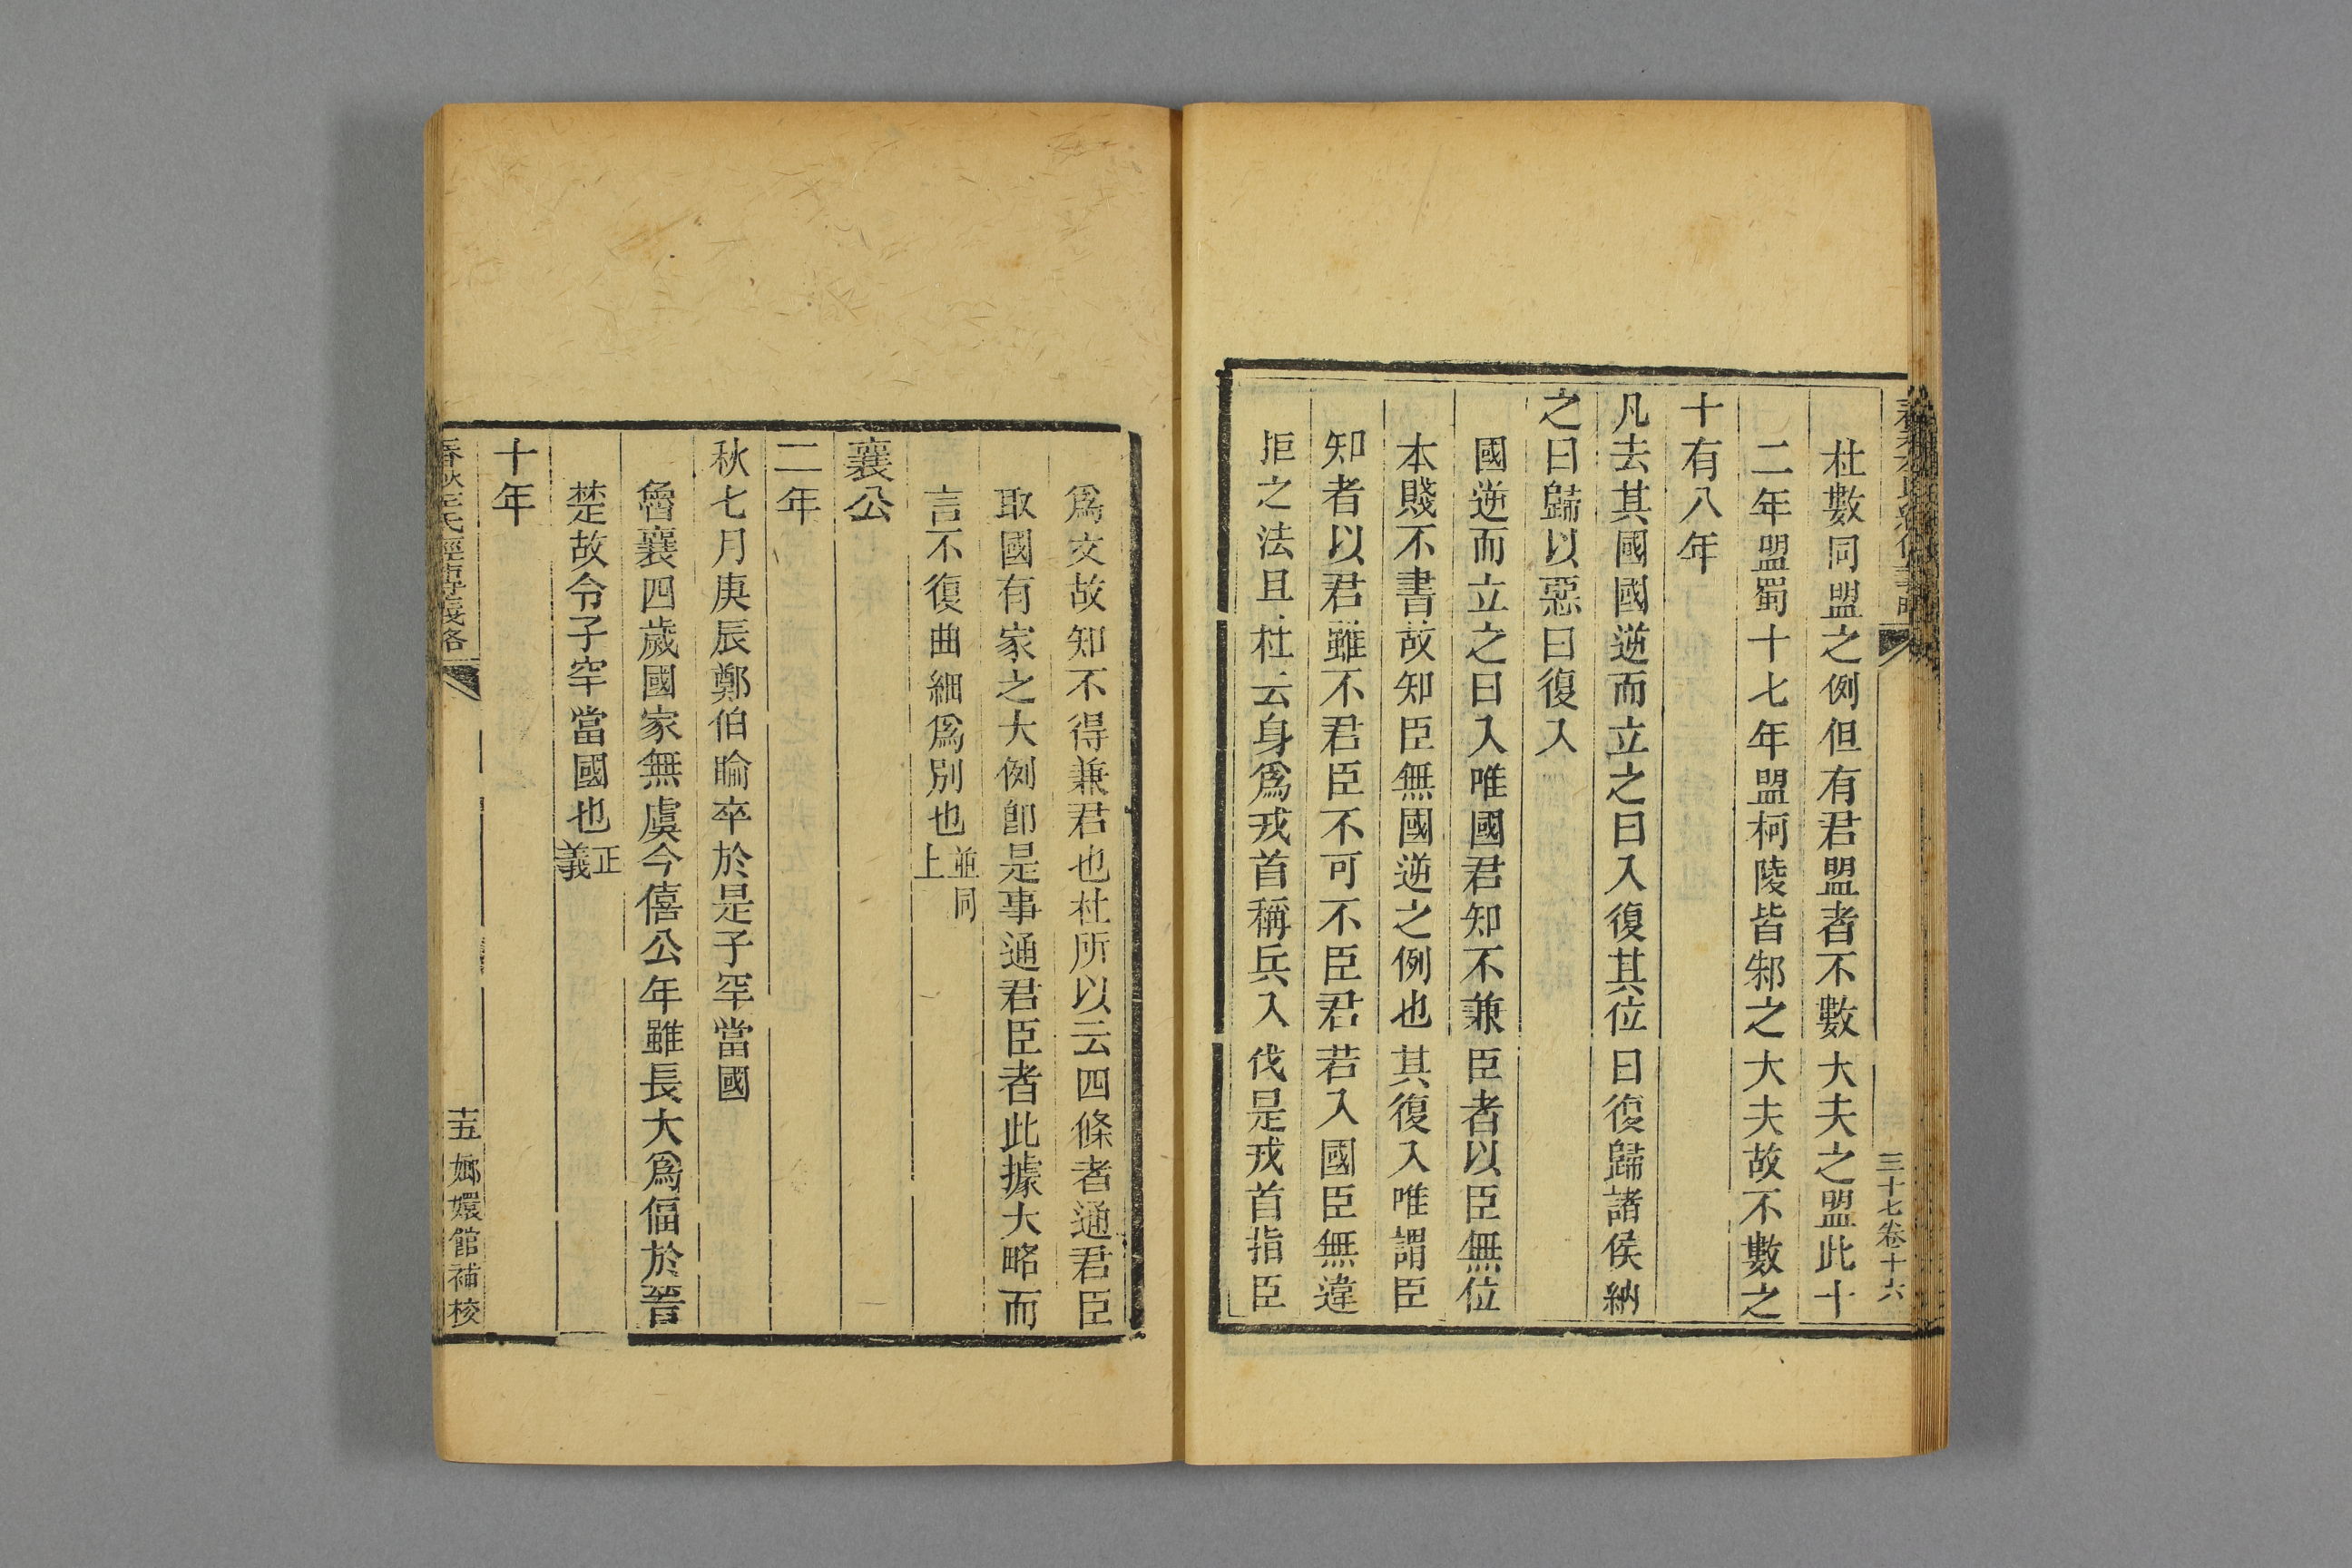 三十七卷十六
杜數同盟之例但有君盟者不數大夫之盟此十
二年盟蜀十七年盟柯陵皆邾之大夫故不數之
十有八年
凡去其國國逆而立之曰入復其位曰復歸諸侯納
之曰歸以惡曰復入
國逆而立之曰入唯國君知不兼臣者以臣無位
本賤不書故知臣無國逆之例也其復入唯謂臣
知者以君雖不君臣不可不臣君若入國臣無違
拒之法且杜云身爲戎首稱兵入伐是戎首指臣
爲文故知不得兼君也杜所以云四條者通君臣
取國有家之大例卽是事通君臣者此據大略而
言不復曲細爲別也並同上
襄公
二年
秋七月庚辰鄭伯睔卒於是子罕當國
魯襄四歲國家無虞今僖公年雖長大爲偪於晉
楚故令子罕當國也正義
十年
春秋左氏經傳義略
十五 嫏嬛館補校